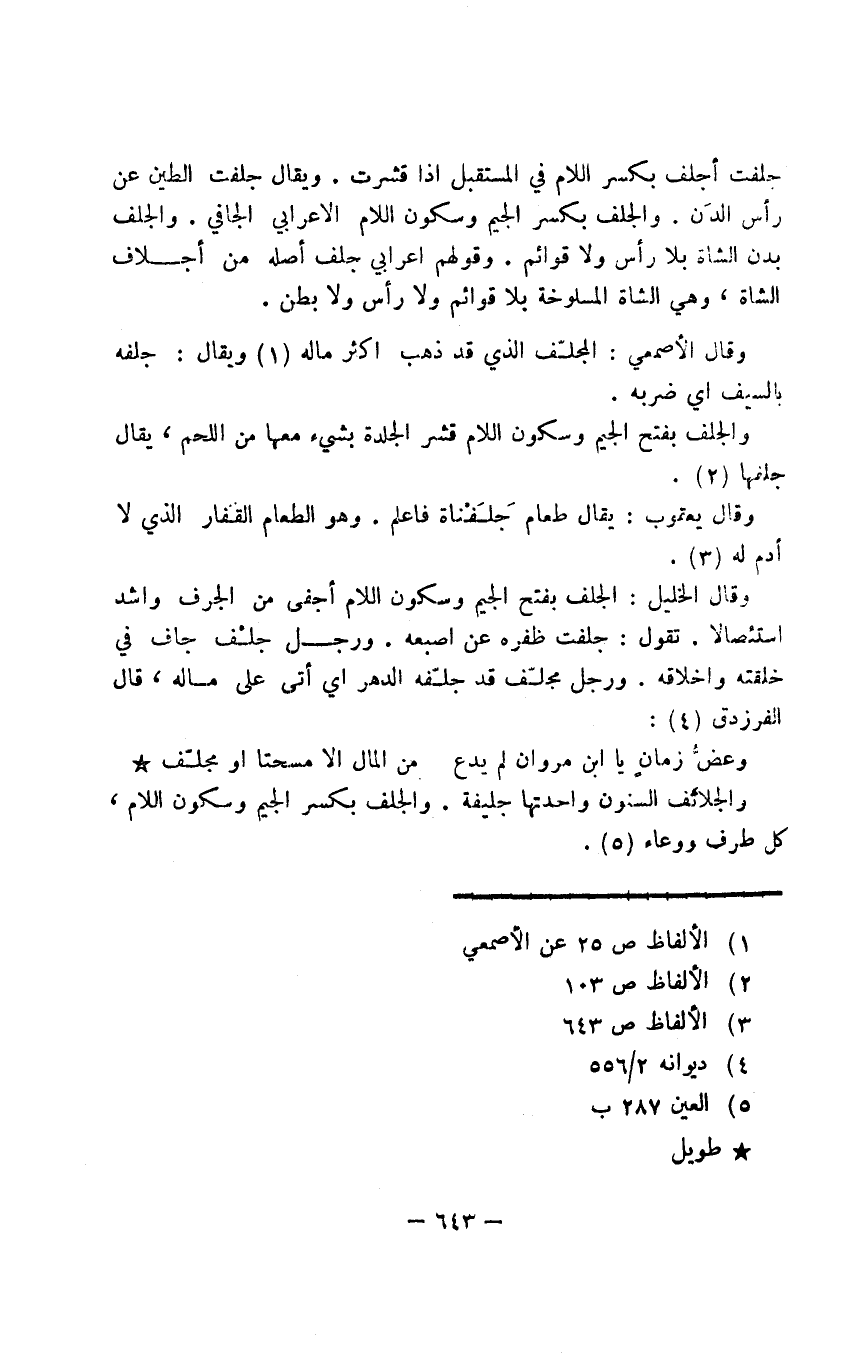 جلفت أجلف بكسر اللام في المستقبل اذا قشرت . ويقال جلفت الطين عن
رأس الدَن . والجلف بكسر الجيم وسكون اللام الاعرابي الجافي . والجلف
بدن الشاة بلا رأس ولا قوائم . وقولهم اعرابي جلف أصله من أجـــلاف
الشاة ، وهي الشاة المسلوخة بلا قوائم ولا رأس ولا بطن .
وقال الأصمعي : المجلّف الذي قد ذهب اكثر ماله (١) ويقال : جلفه
بالسيف اي ضربه .
والجلف بفتح الجيم وسكون اللام قشر الجلدة بشيء معها من اللحم ، يقال
جلفها (٢) .
وقال يعقوب : يقال طعام جَلَفْناة فاعلم . وهو الطعام القفار الذي لا
أدم له (٣) .
وقال الخليل : الجلف بفتح الجيم وسكون اللام أجفى من الجرف واشد
استئصالا . تقول : جلفت ظفره عن اصبعه . ورجـــل جلْف جاف في
خلقته واخلاقه . ورجل مجلّف قد جلّفه الدهر اي أتى على مـاله ، قال
الفرزدق (٤) :
وعضُّ زمانٍ يا ابن مروان لم يدع من المال الا مسحتا او مجلّف ★
والجلائف السنون واحدتها جليفة . والجلف بكسر الجيم وسكون اللام ،
كل طرف ووعاء (٥) .
١) الألفاظ ص ٢٥ عن الأصمعي
٢) الألفاظ ص ١٠٣
٣) الألفاظ ص ٦٤٣
٤) ديوانه ٥٥٦/٢
٥) العين ٢٨٧ ب
★ طويل
– ٦٤٣ –